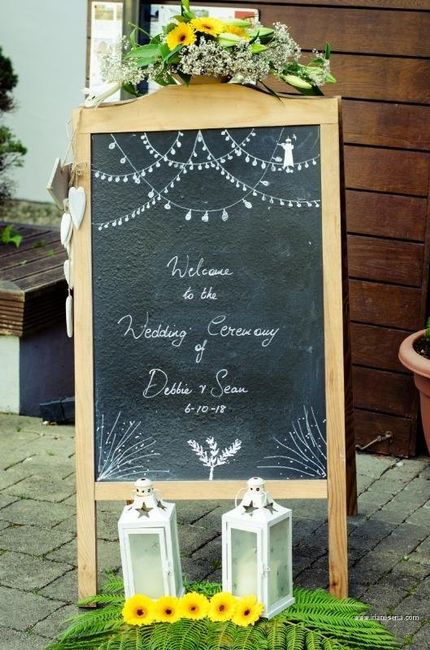 Welcome
to the
Wedding Ceremony
of
Debbie & Sean
6-10-18